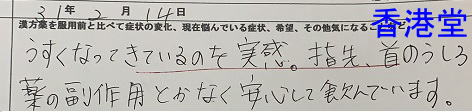 31年2月14日
香港堂
漢方薬を服用前と比べて症状の変化、現在悩んでいる症状、希望、その他気になること
うすくなってきているのを実感。指先、首のうしろ
薬の副作用とかなく安心して飲んでいます。